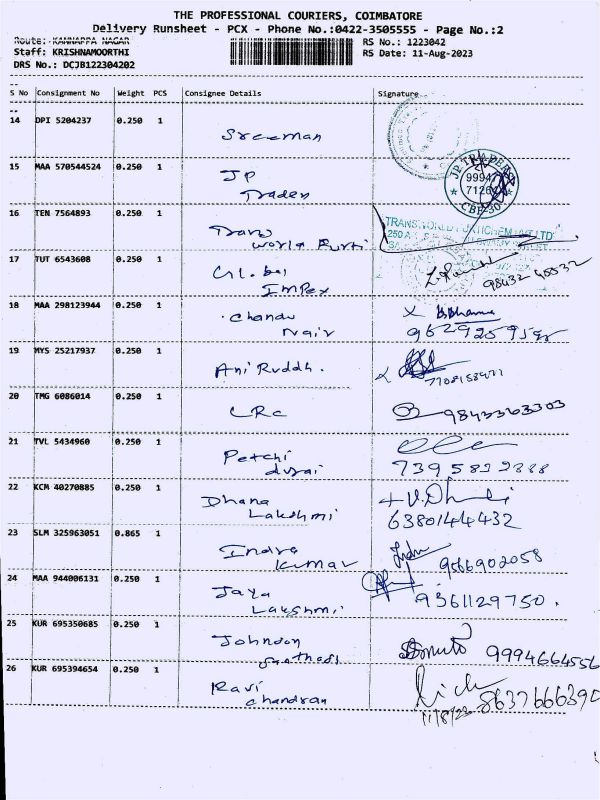 THE PROFESSIONAL COURIERS, COIMBATORE
Delivery Runsheet - PCX - Phone No.:0422-3505555 - Page No.:2
Route: KANNAPPA NAGAR
RS No.: 1223042
Staff: KRISHNAMOORTHI
RS Date: 11-Aug-2023
DRS No.: DCJB122304202
S No Consignment No Weight PCS Consignee Details Signature
14 DPI 5204237 0.250 1 Sreeman
15 MAA 570544524 0.250 1 JP
Traders
JP TRADERS
CBE-30
16 TEN 7564893 0.250 1 Trans
World
17 TUT 6543608 0.250 1 Global
Impex
18 MAA 298123944 0.250 1 Chandu
Nair
19 MYS 25217937 0.250 1 Ani Ruddh.
20 TMG 6086014 0.250 1 LRC 9843363303
21 TVL 5434960 0.250 1 Petchi
durai
22 KCM 40270885 0.250 1 Dhana
Lakshmi
6380144432
23 SLM 325963051 0.865 1 Indra
Kumar
9566902058
24 MAA 944006131 0.250 1 Jaya
Lakshmi
9361129750.
25 KUR 695350685 0.250 1 Johnson
9994664556
26 KUR 695394654 0.250 1 Ravi
chandran
11/8/23 8637666390